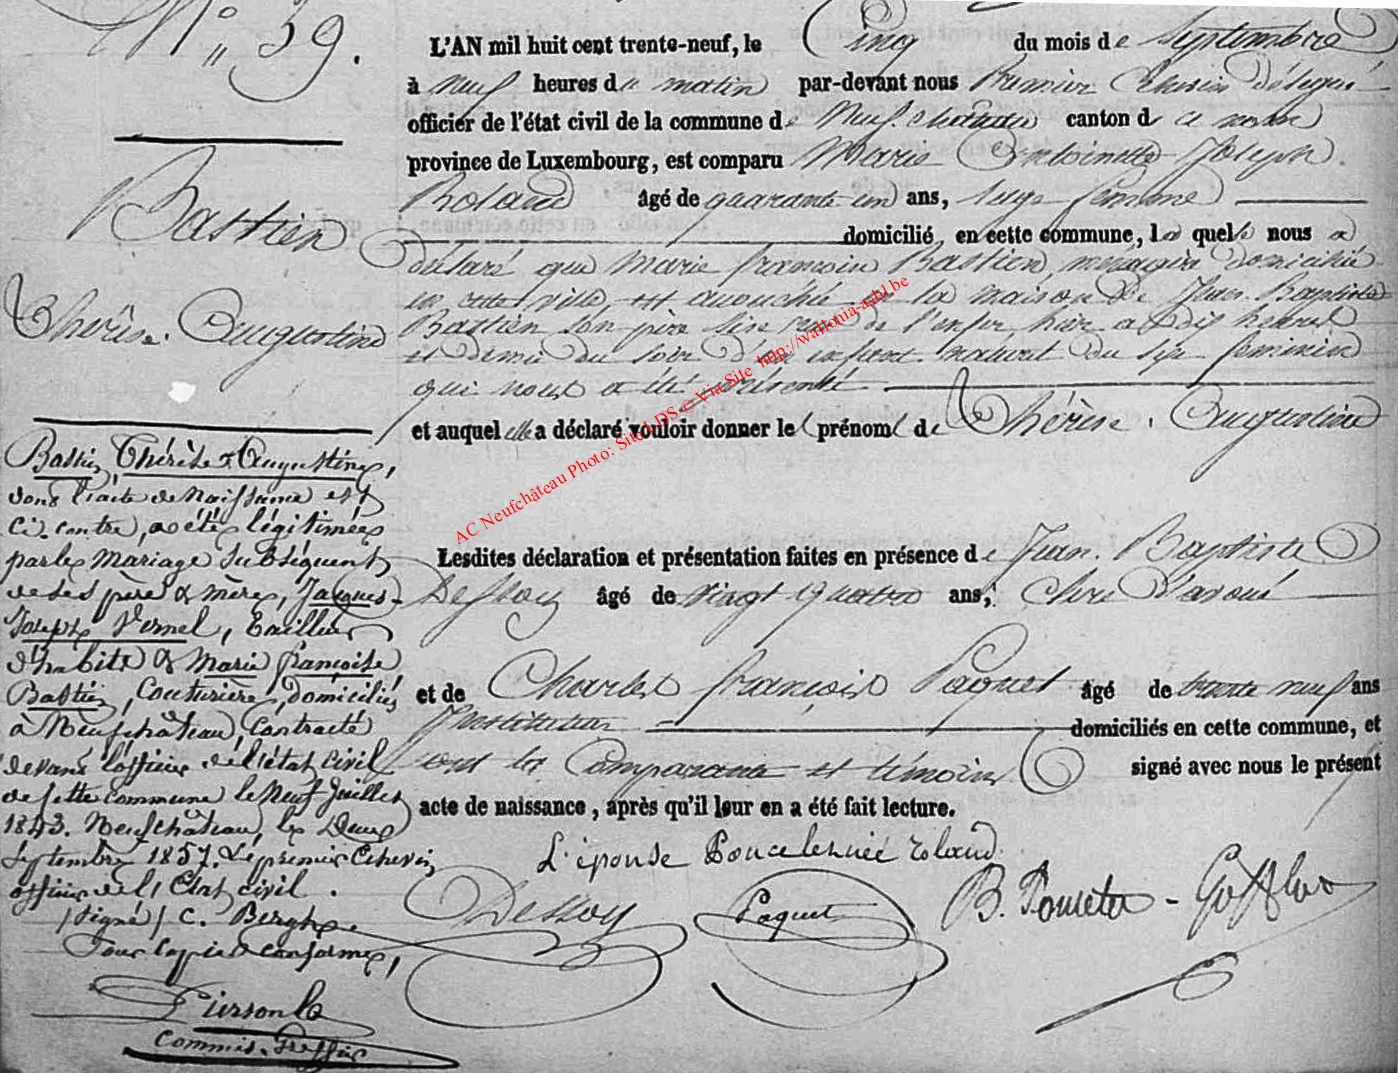 N° 39.
Bastien
Thérèse. Augustine
L'AN mil huit cent trente-neuf, le Cinq du mois de Septembre
à neuf heures du matin par-devant nous Premier Echevin délégué
officier de l'état civil de la commune de Neufchateau canton de ce nom
province de Luxembourg, est comparu Marie Antoinette Joseph
Roland âgé de quarante un ans, sage femme
domicilié en cette commune, laquelle nous a
déclaré que Marie françoise Bastien, menagère domiciliée
en cette ville, est accouchée en la maison de Jean Baptiste
Bastien son père sise rue de l'enfer hier a dix heures
et demie du soir d'un enfant naturel du sexe feminin
qui nous a été présenté
et auquel elle a déclaré vouloir donner le prénom de Thérèse. Augustine
Lesdites déclaration et présentation faites en présence de Jean. Baptiste
Dessoy âgé de vingt quatre ans, Clerc d'avoué
et de Charles françois Paquet âgé de trente neuf ans
Instituteur domiciliés en cette commune, et
ont les Comparante et témoins signé avec nous le présent
acte de naissance, après qu'il leur en a été fait lecture.
L'épouse Poncelet née roland
Dessoy Paquet B.
Bastien Thérèse & Augustine,
dont l'acte de Naissance est
Ci-contre, a été légitimée
par le mariage Subséquent
de ses père & mère, Jacques-
Joseph Vernel, Tailleur
d'habits & Marie françoise
Bastien, Couturière, domiciliés
à Neufchâteau, Contracté
devant l'officier de l'état civil
de cette commune le Neuf Juillet
1843. Neufchâteau, le Deux
Septembre 1857. Le premier Echevin
officier de l'Etat civil.
/signé/ C. Bergh
Pour Copie conforme,
Commis-Greffier
AC Neufchâteau Photo: Site LDS © Via Site http://wallonia-asbl.be